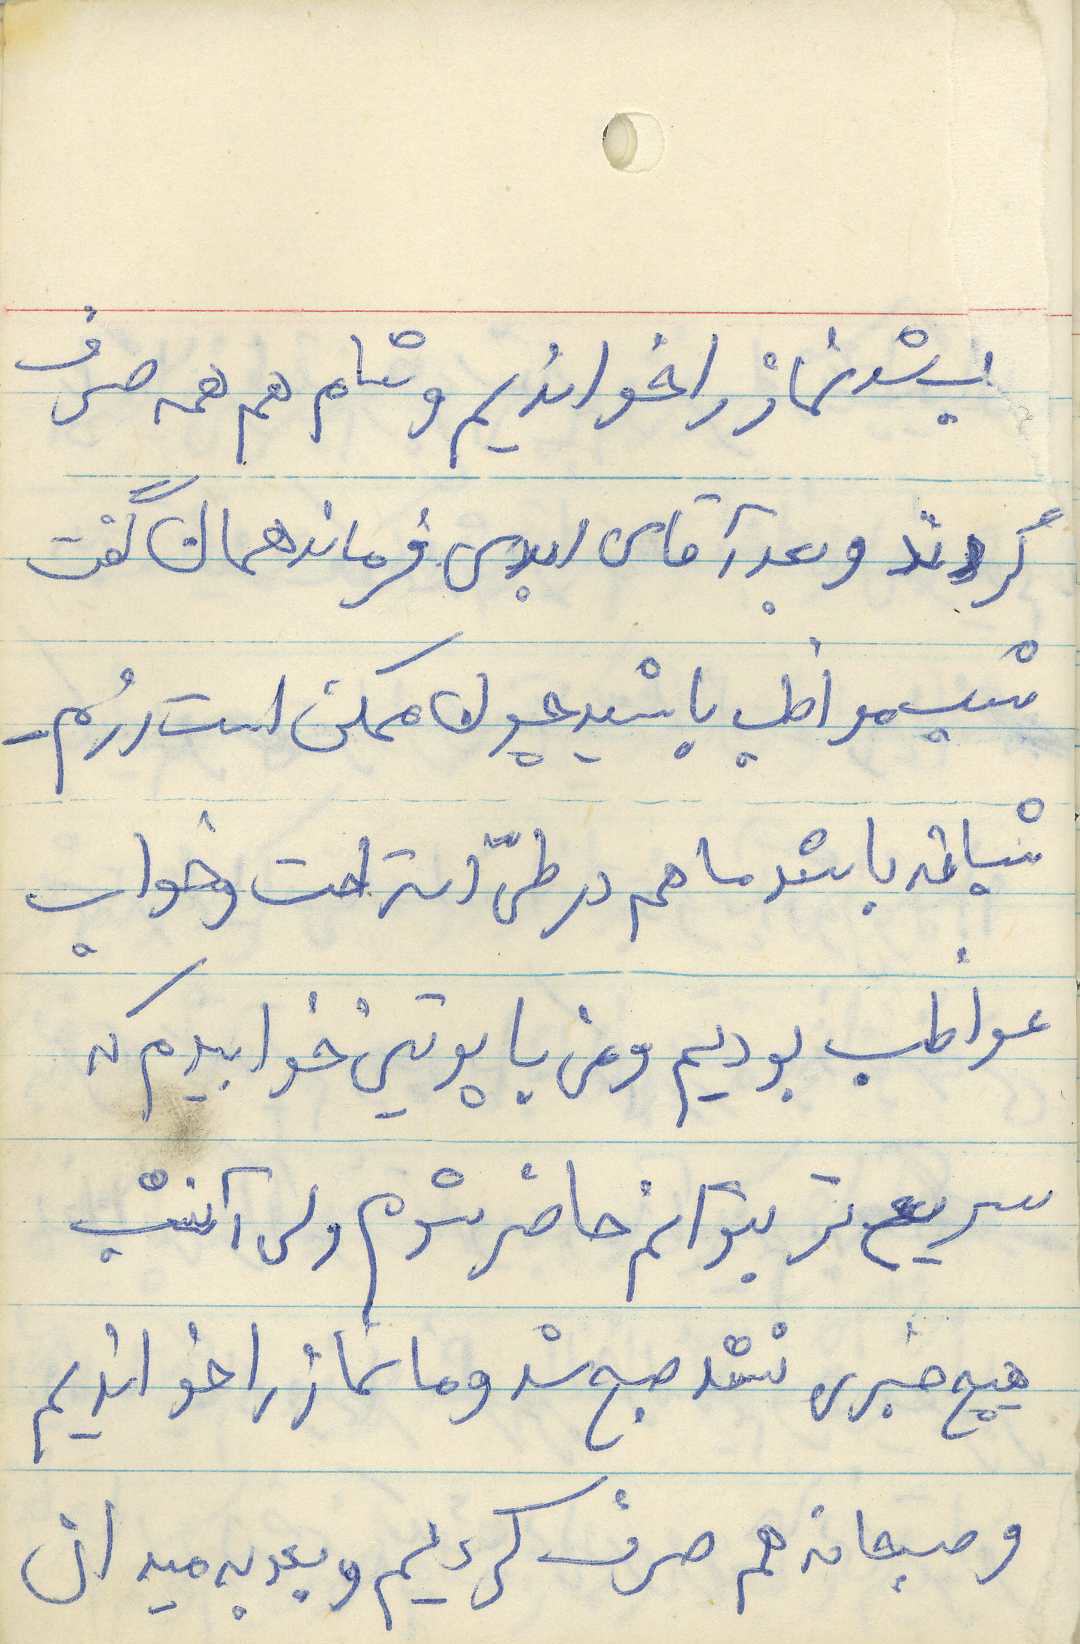 شب شد نماز را خواندیم و شام هم همه صرف
کردند و بعد آقای اسدی فرماندهمان گفت
شب مواظب باشید چون ممکن است رزم
شبانه باشد ما هم در طیّ استراحت و خواب
مواظب بودیم و من با پوتین خوابیدم که
سریع تر بتوانم حاضر شوم ولی آنشب
هیچ خبری نشد صبح شد و ما نماز را خواندیم
و صبحانه هم صرف کردیم و بعد به میدان